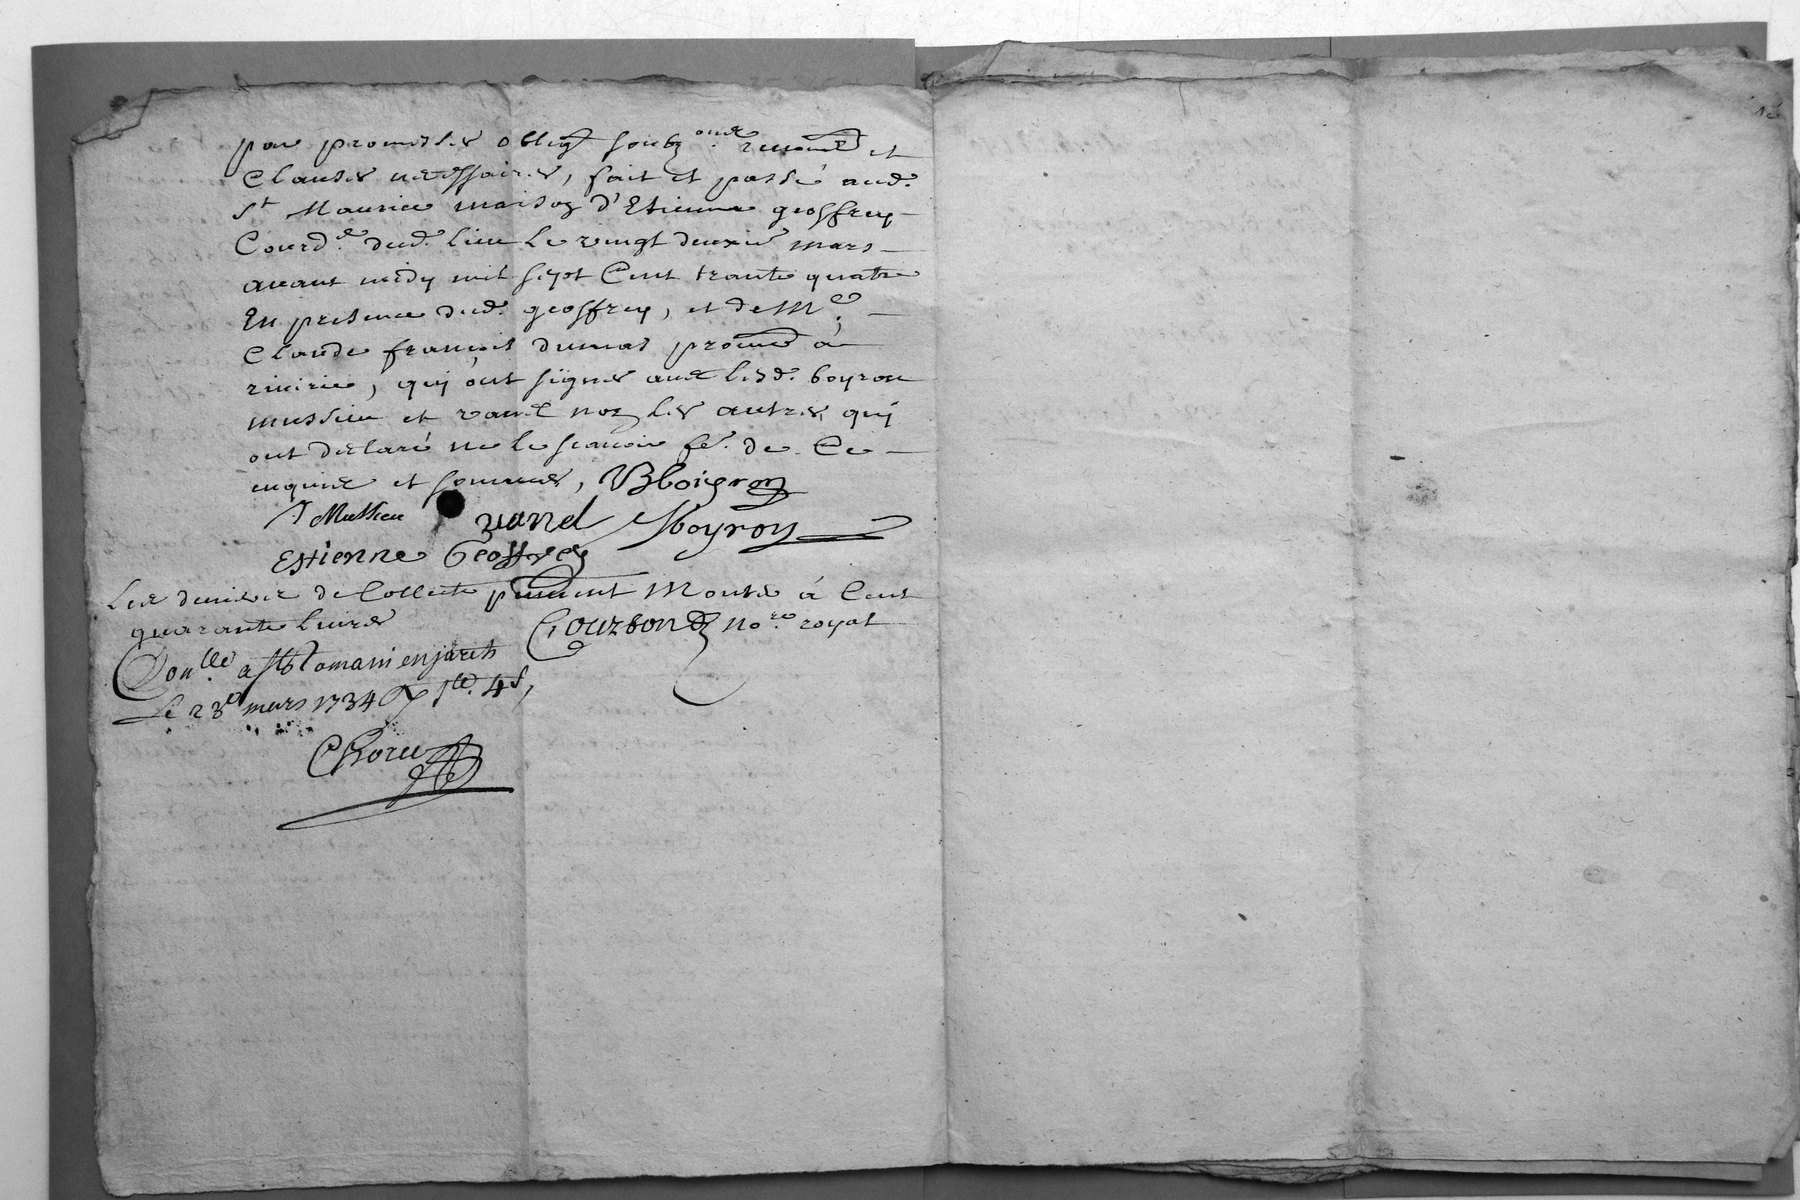 par promesses obligõns soubzons renonõns et
Clauses necessaires, fait et passé aud.
St Maurice maison d'Etienne geoffrey
Courd.r dud. lieu le vingt deuxie mars
avant midy mil sept Cent trante quatre
En presence dud. geoffrey, et de Me.
Claude françois dumas á
riverie, qui ont signes avec lesd. boyron
mussieu et vanel non les autres, qui
ont declaré ne le scavoir fe. de Ce
enquires et sommes, Bboyron
Mussieu vanel Boyron
Estienne Geoffrey
Les deniers de Collecte montes á Cent
quarante livres Gourbon no.re royal
Con.lle a st Romain en jarets
Le 23e mars 1734 4s,
Chorel